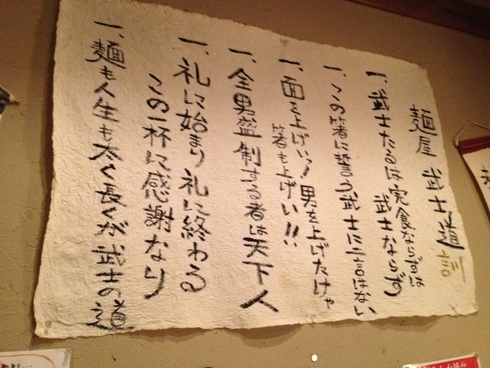 麺屋 武士道 訓
一、武士たるは完食ならずは
武士ならず
一、この箸に誓う武士に二言はない
一、面を上げいっ!男を上げたけりゃ
箸も上げい!!
一、全男盛制する者は天下人
一、礼に始まり礼に終わる
この一杯に感謝なり
一、麺も人生も太く長くが武士の道